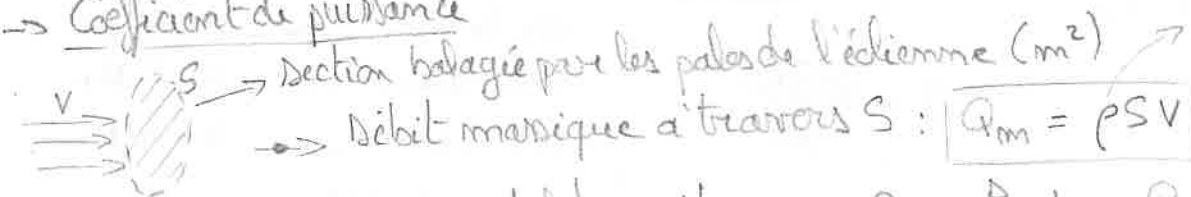 -> Coefficient de puissance
S -> Section balayée par les pales de l'éolienne (m²)
V
-> Débit massique à travers S : Qm = ρSV